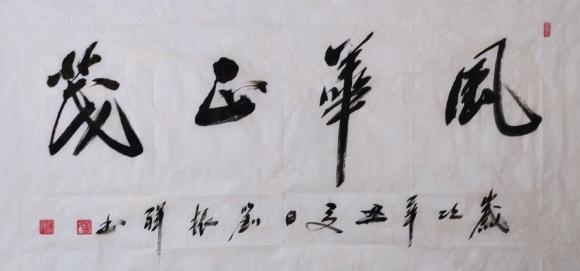 風華正茂
歲次辛丑夏日劉振书